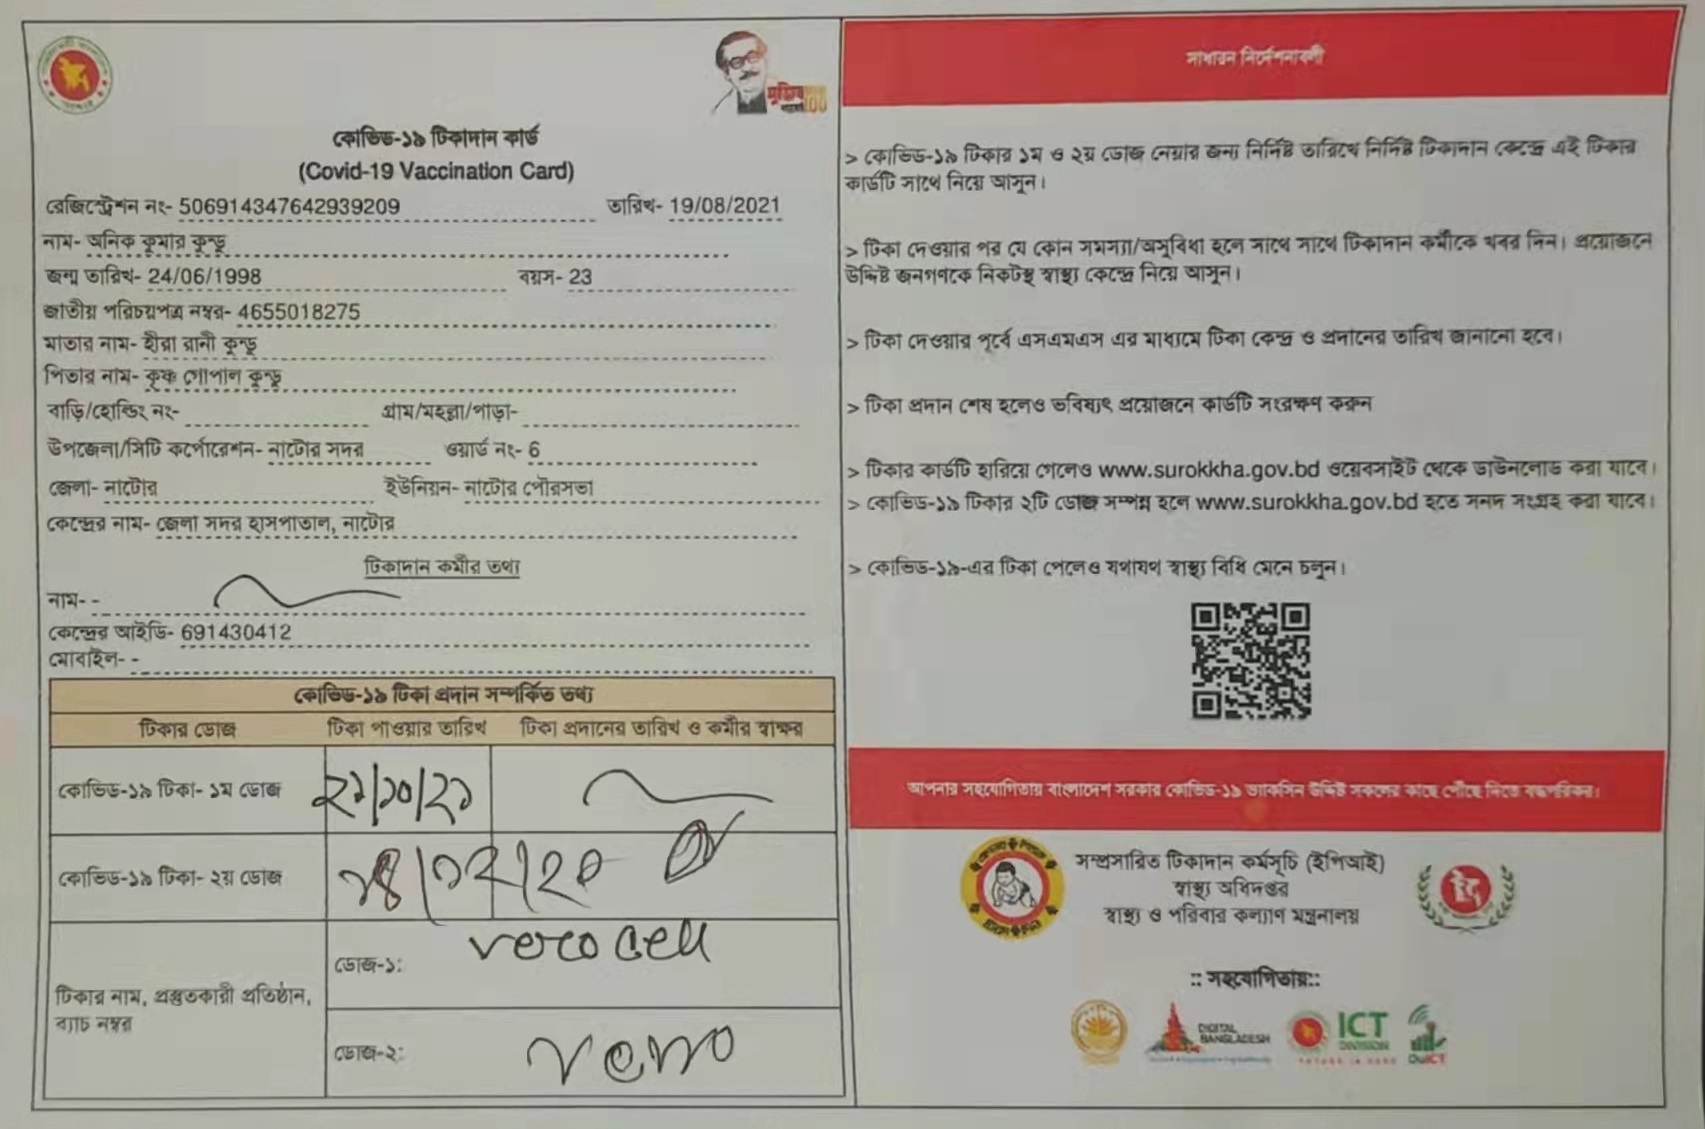 কোভিড-১৯ টিকাদান কার্ড
(Covid-19 Vaccination Card)
রেজিস্ট্রেশন নং- 506914347642939209 তারিখ- 19/08/2021
নাম- অনিক কুমার কুন্ডু
জন্ম তারিখ- 24/06/1998 বয়স- 23
জাতীয় পরিচয়পত্র নম্বর- 4655018275
মাতার নাম- হীরা রানী কুন্ডু
পিতার নাম- কৃষ্ণ গোপাল কুন্ডু
বাড়ি/হোল্ডিং নং- গ্রাম/মহল্লা/পাড়া-
উপজেলা/সিটি কর্পোরেশন- নাটোর সদর ওয়ার্ড নং- 6
জেলা- নাটোর ইউনিয়ন- নাটোর পৌরসভা
কেন্দ্রের নাম- জেলা সদর হাসপাতাল, নাটোর
টিকাদান কর্মীর তথ্য
নাম- -
কেন্দ্রের আইডি- 691430412
মোবাইল- -
কোভিড-১৯ টিকা প্রদান সম্পর্কিত তথ্য
টিকার ডোজ টিকা পাওয়ার তারিখ টিকা প্রদানের তারিখ ও কর্মীর স্বাক্ষর
কোভিড-১৯ টিকা- ১ম ডোজ ২১/১০/২১
কোভিড-১৯ টিকা- ২য় ডোজ
টিকার নাম, প্রস্তুতকারী প্রতিষ্ঠান, ব্যাচ নম্বর
ডোজ-১: vero cell
ডোজ-২: vero
সাধারন নির্দেশনাবলী
> কোভিড-১৯ টিকার ১ম ও ২য় ডোজ নেয়ার জন্য নির্দিষ্ট তারিখে নির্দিষ্ট টিকাদান কেন্দ্রে এই টিকার
কার্ডটি সাথে নিয়ে আসুন।
> টিকা দেওয়ার পর যে কোন সমস্যা/অসুবিধা হলে সাথে সাথে টিকাদান কর্মীকে খবর দিন। প্রয়োজনে
উদ্দিষ্ট জনগণকে নিকটস্থ স্বাস্থ্য কেন্দ্রে নিয়ে আসুন।
> টিকা দেওয়ার পূর্বে এসএমএস এর মাধ্যমে টিকা কেন্দ্র ও প্রদানের তারিখ জানানো হবে।
> টিকা প্রদান শেষ হলেও ভবিষ্যৎ প্রয়োজনে কার্ডটি সংরক্ষণ করুন
> টিকার কার্ডটি হারিয়ে গেলেও www.surokkha.gov.bd ওয়েবসাইট থেকে ডাউনলোড করা যাবে।
> কোভিড-১৯ টিকার ২টি ডোজ সম্পন্ন হলে www.surokkha.gov.bd হতে সনদ সংগ্রহ করা যাবে।
> কোভিড-১৯-এর টিকা পেলেও যথাযথ স্বাস্থ্য বিধি মেনে চলুন।
আপনার সহযোগিতায় বাংলাদেশ সরকার কোভিড-১৯ ভ্যাকসিন উদ্দিষ্ট সকলের কাছে পৌঁছে দিতে বদ্ধপরিকর।
সম্প্রসারিত টিকাদান কর্মসূচি (ইপিআই)
স্বাস্থ্য অধিদপ্তর
স্বাস্থ্য ও পরিবার কল্যাণ মন্ত্রনালয়
:: সহযোগিতায়::
DIGITAL
BANGLADESH
ICT
DIVISION